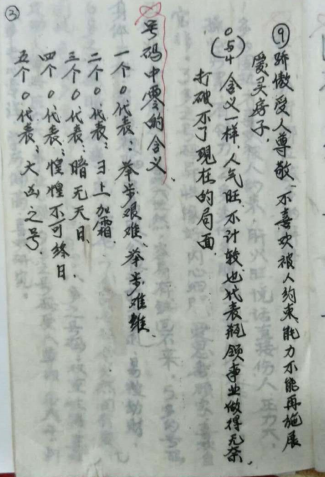 ⑨骄傲受人尊敬、不喜欢被人约束、能力不能再施展
爱买房子、
(054)含义一样、人气旺、不计较也代表瓶领事业做得无奈、
打破不了现在的局面
号码中零的含义、
一个0代表：举步艰难、举步难维、
二个0代表：雪上加霜、
三个0代表：暗无天日、
四个0代表：惶惶不可终日、
五个0代表：大凶之号、
③